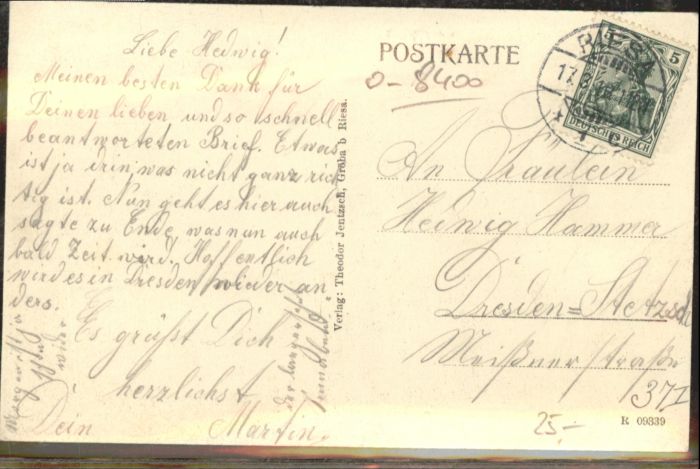 Liebe Hedwig!
Meinen besten Dank für
Deinen lieben und so schnell
beantworteten Brief. Etwas
ist ja drin, was nicht ganz rich
tig ist. Nun geht es hier auch
sagte zu Ende, was nun auch
bald Zeit wird! Hoffentlich
wird es in Dresden wieder an
ders.
Es grüßt Dich
herzlichst
Dein Martin.
wieder
Verlag: Theodor Jentzsch, Gröba b Riesa.
POSTKARTE
0-8400
RIESA
17.
5 5
DEUTSCHES REICH
An Fräulein
Hedwig Hammer
Dresden=Stetzsch
Meißnerstraße
37 I
25.-
R 09339